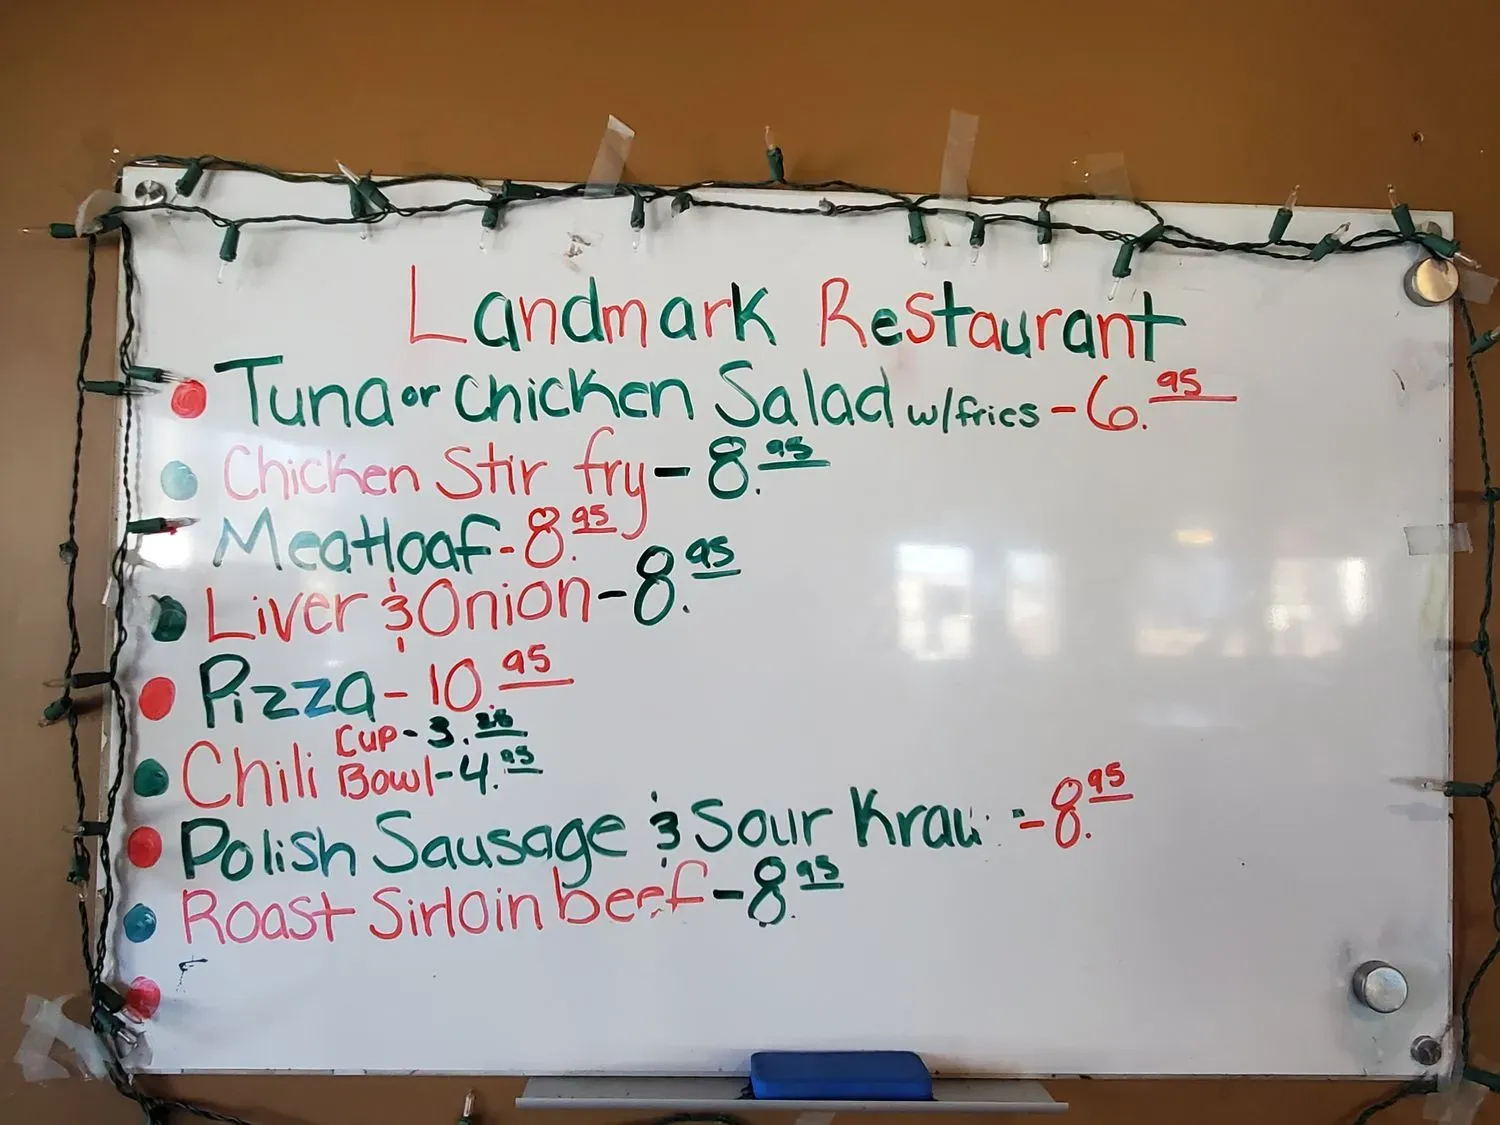 Landmark Restaurant
Tuna or Chicken Salad w/fries - 6.95
Chicken Stir fry - 8.95
Meatloaf - 8.95
Liver & Onion - 8.95
Pizza - 10.95
Chili Cup - 3.
Bowl - 4.95
Polish Sausage & Sour Krau - 8.95
Roast Sirloin beef - 8.95